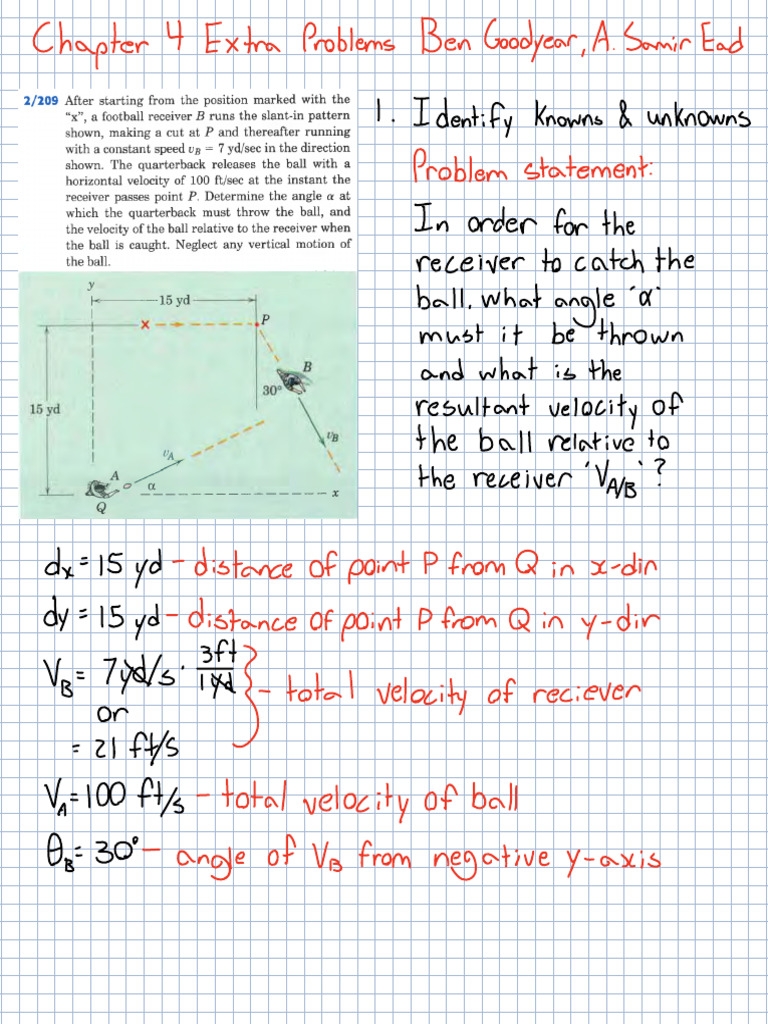 Chapter 4 Extra Problems Ben Goodyear, A. Samir Ead
2/209 After starting from the position marked with the
"x", a football receiver B runs the slant-in pattern
shown, making a cut at P and thereafter running
with a constant speed vB = 7 yd/sec in the direction
shown. The quarterback releases the ball with a
horizontal velocity of 100 ft/sec at the instant the
receiver passes point P. Determine the angle α at
which the quarterback must throw the ball, and
the velocity of the ball relative to the receiver when
the ball is caught. Neglect any vertical motion of
the ball.
y
15 yd
x
P
B
30°
15 yd
vB
vA
A
α
x
Q
1. Identify Knowns & unknowns
Problem statement:
In order for the
receiver to catch the
ball, what angle 'α'
must it be thrown
and what is the
resultant velocity of
the ball relative to
the receiver 'VA/B'?
dx = 15 yd - distance of point P from Q in x-dir
dy = 15 yd - distance of point P from Q in y-dir
VB = 7yd/s · 3ft/1yd - total velocity of reciever
or
= 21 ft/s
VA = 100 ft/s - total velocity of ball
θB = 30° - angle of VB from negative y-axis